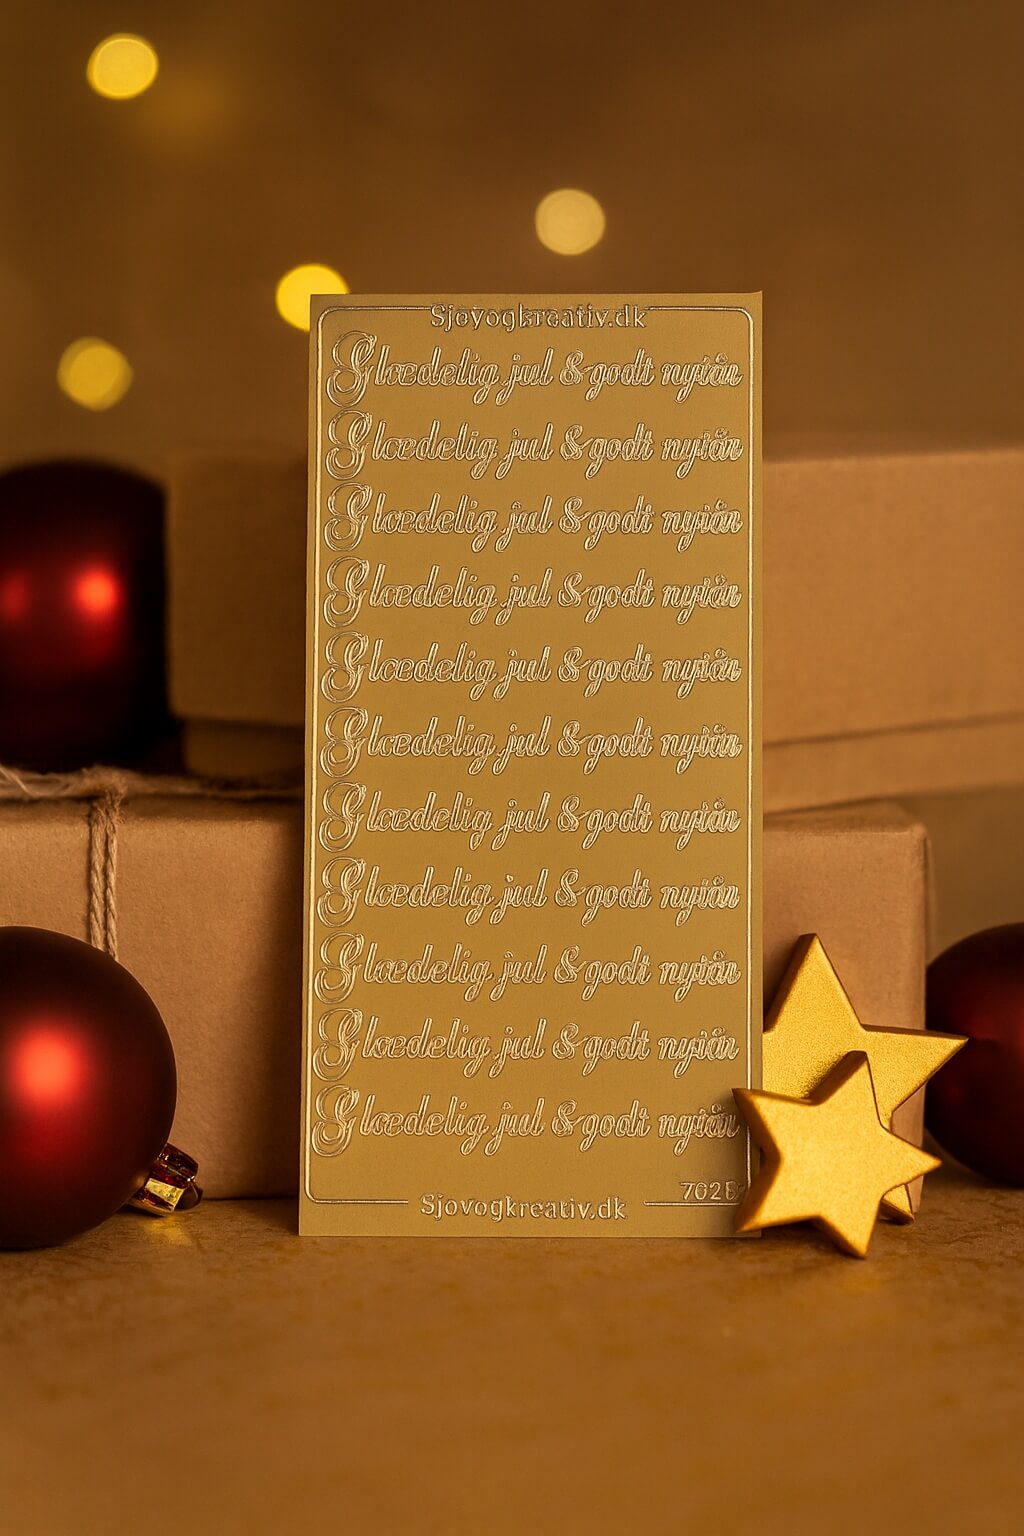 Sjovogkreativ.dk
Glædelig jul & godt nytår
Glædelig jul & godt nytår
Glædelig jul & godt nytår
Glædelig jul & godt nytår
Glædelig jul & godt nytår
Glædelig jul & godt nytår
Glædelig jul & godt nytår
Glædelig jul & godt nytår
Glædelig jul & godt nytår
Glædelig jul & godt nytår
Glædelig jul & godt nytår
Sjovogkreativ.dk